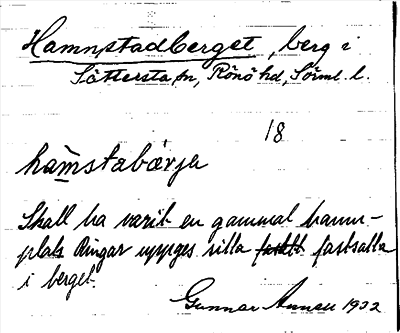 Hamnstadberget, berg i
Sättersta sn, Rönö hd, Sörml. l.
18
hamstabärja
Skall ha varit en gammal hamn-
plats Ringar uppges sitta fastsatta
i berget.
Gunnar 1932